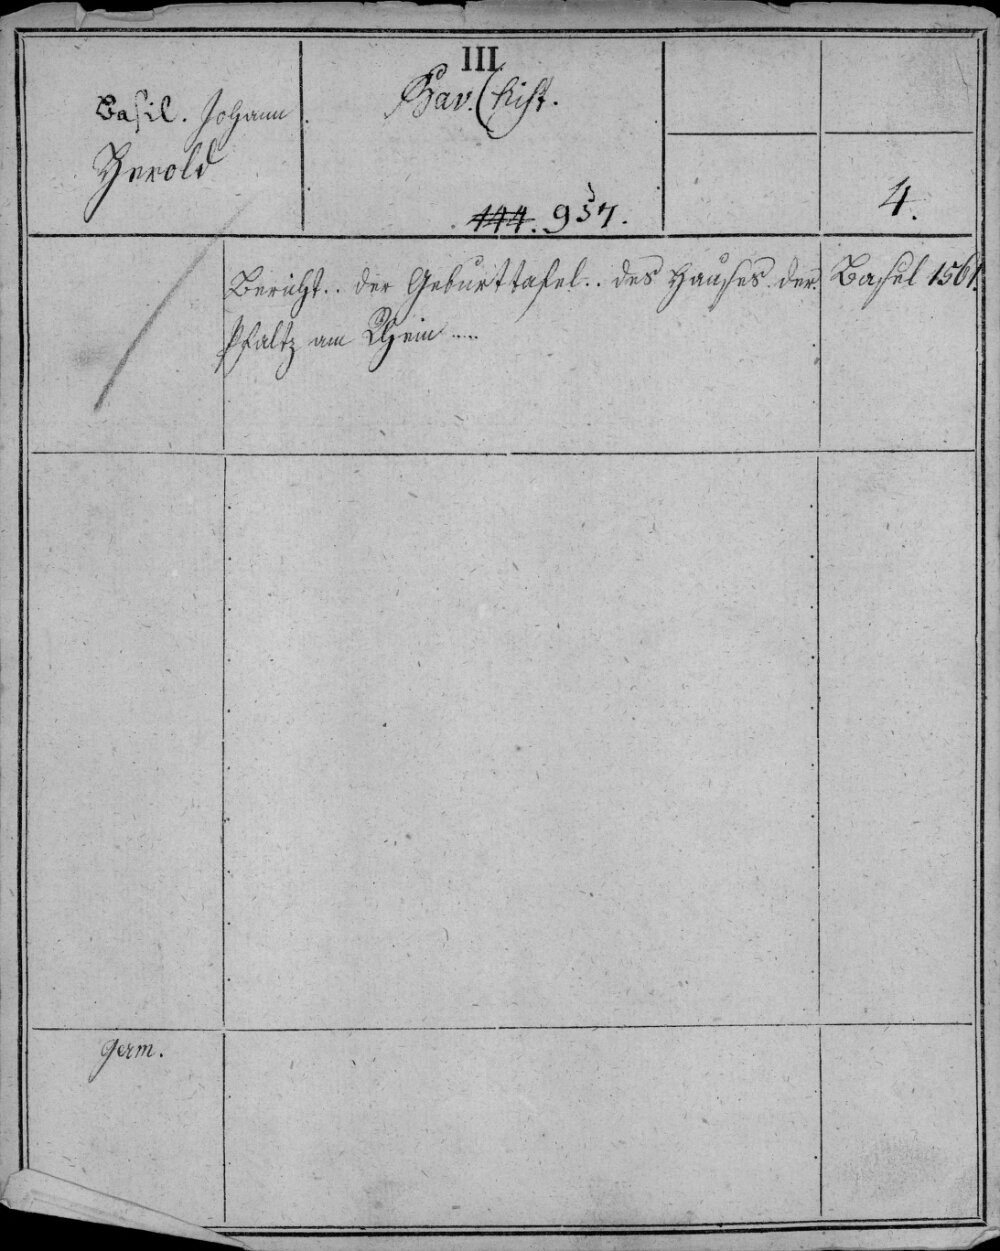 III
Basil. Johann
Herold
Bav. (hist.
444. 957.
4.
Bericht.. der Geburttafel.. des Hauses der
Pfaltz am Rhein .....
Basel 1561.
germ.